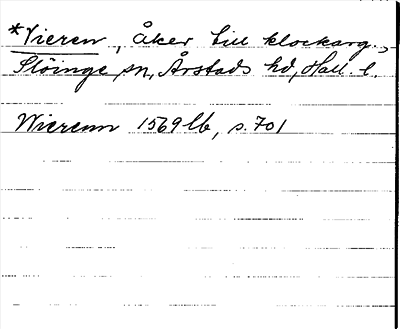 *Vieren, Åker till klockarg.,
Slöinge sn, Årstads hd, Hall. l.
Wierenn 1569 lb, s. 701